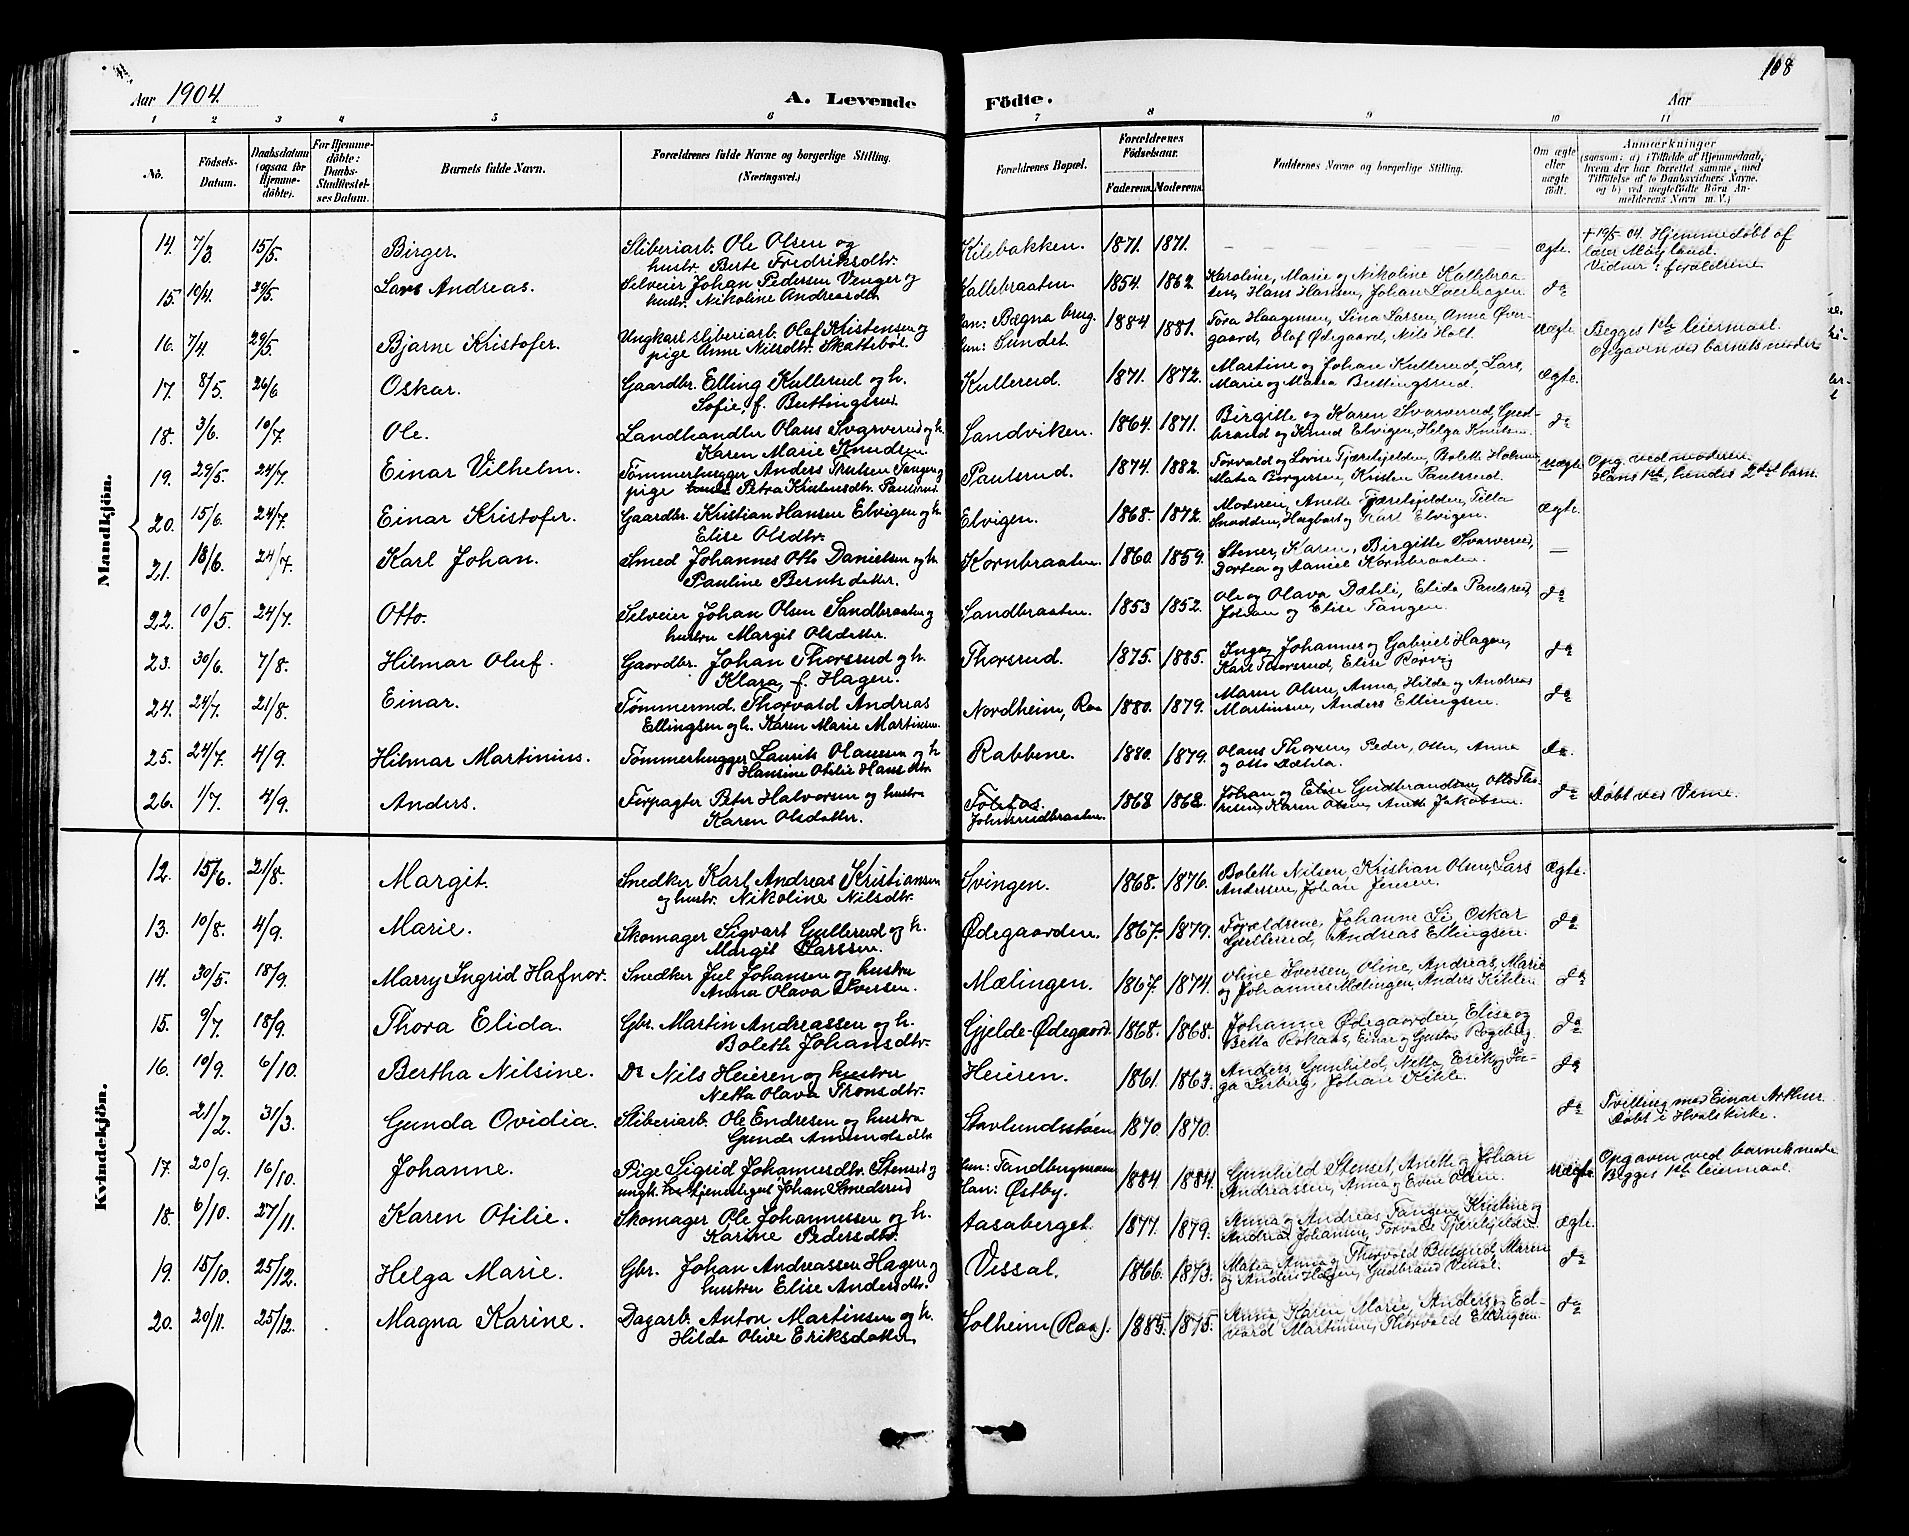 Aar 1904.
A. Levende Födte.
Aar
108
1 2 3 4 5 6 7 8 9 10 11
No.
Födsels-Datum.
Daabsdatum (ogsaa for Hjemme-döbte).
For Hjemme-döbte: Daabs-Stadfæstel-ses Datum.
Barnets fulde Navn.
Forældrenes fulde Navne og borgerlige Stilling. (Næringsvei.)
Forældrenes Bopæl.
Forældrenes Födselsaar.
Faderens. Moderens.
Faddernes Navne og borgerlige Stilling.
Om ægte eller uægte födt.
Anmærkninger
(saasom: a) i Tilfælde af Hjemmedaab, hvem der har forrettet samme, med Tilföielse af to Daabsvidners Navne. og b) ved uægtefödte Börn An-melderens Navn m. V.)
Mandkjön.
14. 7/3 15/5. Birger. Sliberiarb. Ole Olsen og hustr. Berte Fredriksdtr. Kilebakken. 1871. 1871. — ægte. + 19/5-04. Hjemmedøbt af lærer Møyland. Vidner: forældrene
15. 10/4. 29/5. Lars Andreas. Selveier Johan Pedersen Venger og hustr. Nikoline Andreasdtr Kallebraaten. 1854. 1862. Karoline, Marie og Nikoline Kallebraa-ten, Hans Hansen, Johan do
16. 7/4. 29/5. Bjarne Kristofer. Ungkarl sliberiarb. Olaf Kristensen og pige Anne Nilsdtr. Skattebøl. han: Bægna brug. hun: Sundet. 1884 1881. Tora Haagensen, Lina Larsen, Anna Øver-gaard, Olaf Ødegaard, Nils Holt. uægte. Begges 1ste leiermaal. Opgaven ved barnets moder
17. 8/5. 26/6 Oskar. Gaardbr. Elling Kullerud og h. Sofie, f. Buttingsrud Kullerud. 1871. 1872. Martine og Johan Kullerud, Lars, Marie og Matea Buttingsrud. ægte.
18. 3/6. 10/7. Ole. Landhandler Olaus Svarverud og h. Karen Marie Knudsen Sandviken. 1864. 1871. Birgitte og Karen Svarverud, Gud-brand og Knud Elvigen, Helga Knutsen. do
19. 29/5. 24/7. Einar Vilhelm. Tømmerhugger Anders Trulsen Tangen og pige Petra Kristensdtr. Paulsrud. Paulsrud. 1874. 1882. Torvald og Lovise Tjærehjelden, Bolette Holmen, Matea Borgersen, Kristen Paulsrud. uægte Opg. ved moderen. Hans 1ste, hendes 2det barn.
20. 15/6. 24/7. Einar Kristofer. Gaardbr. Kristian Hansen Elvigen og h. Elise Olsdtr. Elvigen. 1868. 1872. Moderen, Anette Tjærehjelden, Tilla Snadden, Hagbart og Karl Elvigen. ægte.
21. 18/6. 24/7. Karl Johan. Smed Johannes Otto Danielsen og h. Pauline Berntsdatter. Kornbraaten. 1860. 1859. Stener, Karen, Birgitte Svarverud, Dortea og Daniel Kornbraaten. —
22. 10/5. 24/7. Otto. Selveier Johan Olsen Sandbraaten og hustru Margit Olsdatter. Sandbraaten. 1853 1852. Ole og Olava Dæhli, Elida Paulsrud, Johan og Elise Tangen. do
23. 30/6. 7/8. Hilmar Oluf. Gaardbr. Johan Thorsrud og h. Klara, f. Hagen. Thorsrud. 1875. 1885. Inga, Johannes og Gabriel Hagen, Karl Thorsrud, Elise Rørvig do
24. 24/7. 21/8. Einar. Tømmermd. Thorvald Andreas Ellingsen og h. Karen Marie Martinsen. Nordheim, Raa 1880. 1879. Maren Olsen, Anna, Hilda og Andreas Martinsen, Anders Ellingsen. do
25. 24/7. 4/9. Hilmar Martinius. Tømmerhugger Laurits Olausen og h Hansine Otilie Hansdtr. Rabbene. 1880. 1879. Olaus Thoresen, Peder, Otter, Anna og Otto do.
26. 1/7. 4/9. Anders. Forpagter Peter Halvorsen og hustru Karen Olsdatter. Johnsrudbraaten. 1868 1868. Johan og Elise Gudbrandsen, Karen Olsen, Anette Jakobsen. do Døbt ved Veme.
Kvindekjön.
12. 15/6. 21/8. Margit. Snedker Karl Andreas Kristiansen og hustr. Nikoline Nilsdtr. Svingen. 1868. 1876. Bolette Nilsen, Kristian Olsen, Lars Andersen, Johan Jensen. ægte.
13. 10/8. 4/9. Marie. Skomager Sigvart Gullerud og h. Margit Larssen. Ødegaarden. 1867. 1879. Forældrene, Johanne Li, Oskar Gullerud, Andreas Ellingsen. do
14. 30/5. 18/9. Marry Ingrid Hafnor. Snedker Juel Johansen og hustru Anna Olava Iversen. Mælingen. 1867. 1874. Oline Iversen, Oline, Andreas, Marie og Johannes Mælingen, Anders Kihle. do
15. 9/7. 18/9. Thora Elida. Gbr. Martin Andreassen og h. Bolette Johansdtr. Gjelde-Ødegaard. 1868. 1868. Johanne Ødegaarden, Elise og Betta Rokaas, Einar og Gustav Rogeberg do
16. 10/9. 6/10. Bertha Nilsine. Do Nils Heieren og hustru Netta Olava Tronsdtr. Heieren. 1861. 1863. Anders, Gunhild, Netta, Erik og In-ga Lerberg, Johan Kihle. do
21/2. 31/3. Gunda Ovidia. Sliberiarb. Ole Endresen og hustru Gunda Amundsdtr. Stavlundsstøen 1870. 1870. do Tvilling med Einar Arthur. Døbt i Hvals kirke.
17. 20/9. 16/10. Johanne. Pige Sigrid Johannesdtr. Stenset og ungk. tjenestegut Johan Smedsrud Hun: Tandbergmoen Han: Østby. 1884 1884. Gunhild Stenset, Anette og Johan Andreassen, Anna og Even Olsen. uægte Opgaven ved barnets moder Begges 1ste leiermaal.
18. 6/10. 27/11. Karen Otilie. Skomager Ole Johannessen og h. Karine Pedersdtr. Aasaberget. 1877. 1879. Anna og Andreas Tangen, Kristine og Andreas Johannsen, Torvald Tjærehjelden ægte.
19. 18/10. 25/12. Helga Marie. Gbr. Johan Andreassen Hagen og hustru Elise Andersdtr. Vessal. 1866. 1873. Matea, Anna og Thorvald Busund, Maren og Anders Hagen, Gudbrand Vessal. do
20. 20/11. 25/12. Magna Karine. Dagarb. Anton Martinsen og h. Hilda Olive Eriksdatter Solheim (Raa). 1885. 1875. Anna, Karen Marie, Anders og Ed-vard Martinsen, Thorvald Ellingsen. do